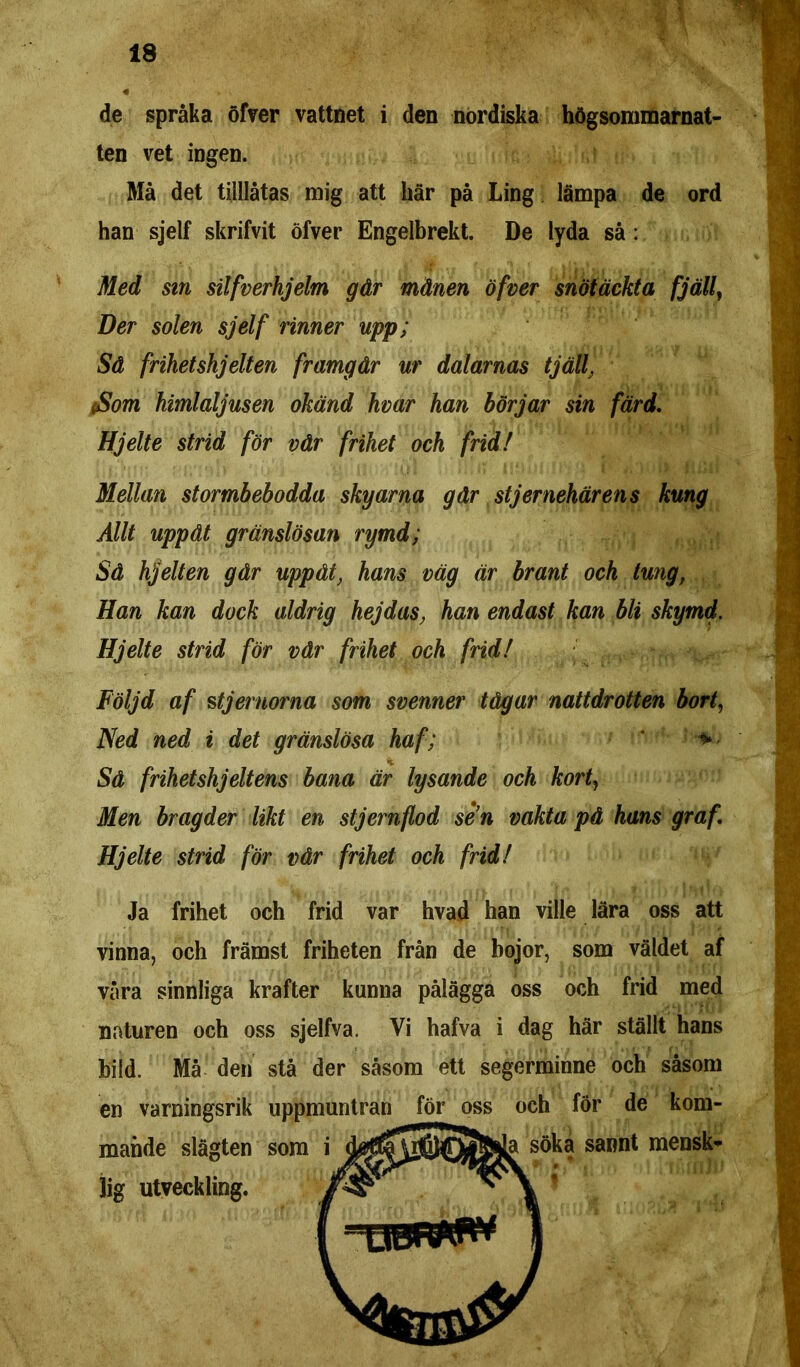 18
de språka öfver vattnet i den nordiska högsommarnat-
ten vet ingen.
Må det tilllåtas mig att här på Ling lämpa de ord
han sjelf skrifvit öfver Engelbrekt. De lyda så:
Med sin silfverhjelm går månen öfver snötäckta fjäll,
Der solen sjelf rinner upp;
Så frihetshjelten framgår ur dalarnas tjäll,
Som himlaljusen okänd hvar han börjar sin färd.
Hjelte strid för vår frihet och frid!
Mellan stormbebodda skyarna går stjernehärens kung
Allt uppåt gränslösan rymd;
Så hjelten går uppåt, hans väg är brant och tung,
Han kan dock aldrig hejdas, han endast kan bli skymd.
Hjelte strid för vår frihet och frid!
Följd af stjernorna som svenner tågar nattdrotten bort,
Ned ned i det gränslösa haf;
Så frihetshjeltens bana är lysande och kort,
Men bragder likt en stjernflod se'n vakta på hans graf.
Hjelte strid för vår frihet och frid!
Ja frihet och frid var hvad han ville lära oss att
vinna, och främst friheten från de bojor, som väldet af
våra sinnliga krafter kunna pålägga oss och frid med
naturen och oss sjelfva. Vi hafva i dag här ställt hans
bild. Må den stå der såsom ett segerminne och såsom
en varningsrik uppmuntran för oss och för de kom-
mande slägten som i söka sannt mensk-
lig utveckling.
LIBRARY